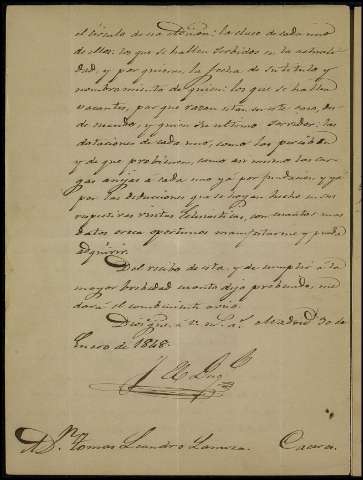 el circulo de su atencion: la clase de cada uno
de ellos: los que se hallen servidos en la actuali-
dad, y por quienes, la fecha de su titulo y
nombramiento de quien: los que se hallen
vacantes, por que razon estan en este caso, des-
de cuando, y quien su ultimo servidor: las
dotaciones de cada uno, como las perciben
y de que probienen, como asi mismo las car-
gas anejas a cada uno yá por fundacion, y yá
por las deducciones que se hayan hecho en sus
respectivas rentas eclesiasticas, con cuantos mas
datos crea oportunos manifestarme y pueda
adquirir.
Del recibo de esta, y de cumplir á la
mayor brebedad cuanto dejo probenido, me
dará el combeniente aviso.
Dios gue. á V. m. a. Madrid 30 de
Enero de 1848.
D. Tomas Leandro Caceres.